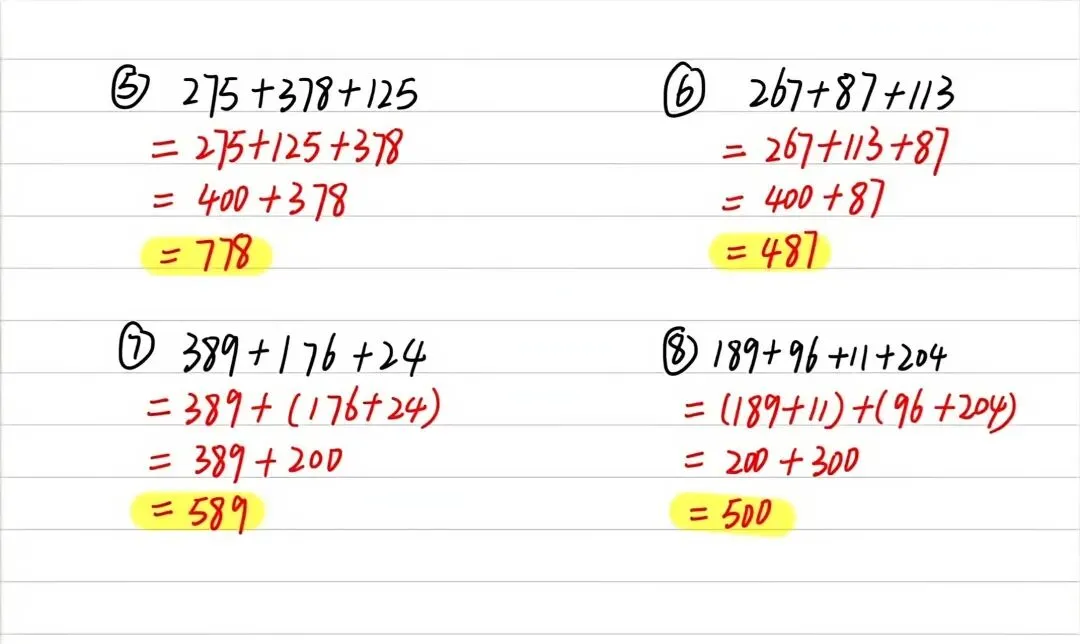 ⑤ 275+378+125
= 275+125+378
= 400+378
= 778
⑥ 267+87+113
= 267+113+87
= 400+87
= 487
⑦ 389+176+24
= 389+(176+24)
= 389+200
= 589
⑧ 189+96+11+204
= (189+11)+(96+204)
= 200+300
= 500